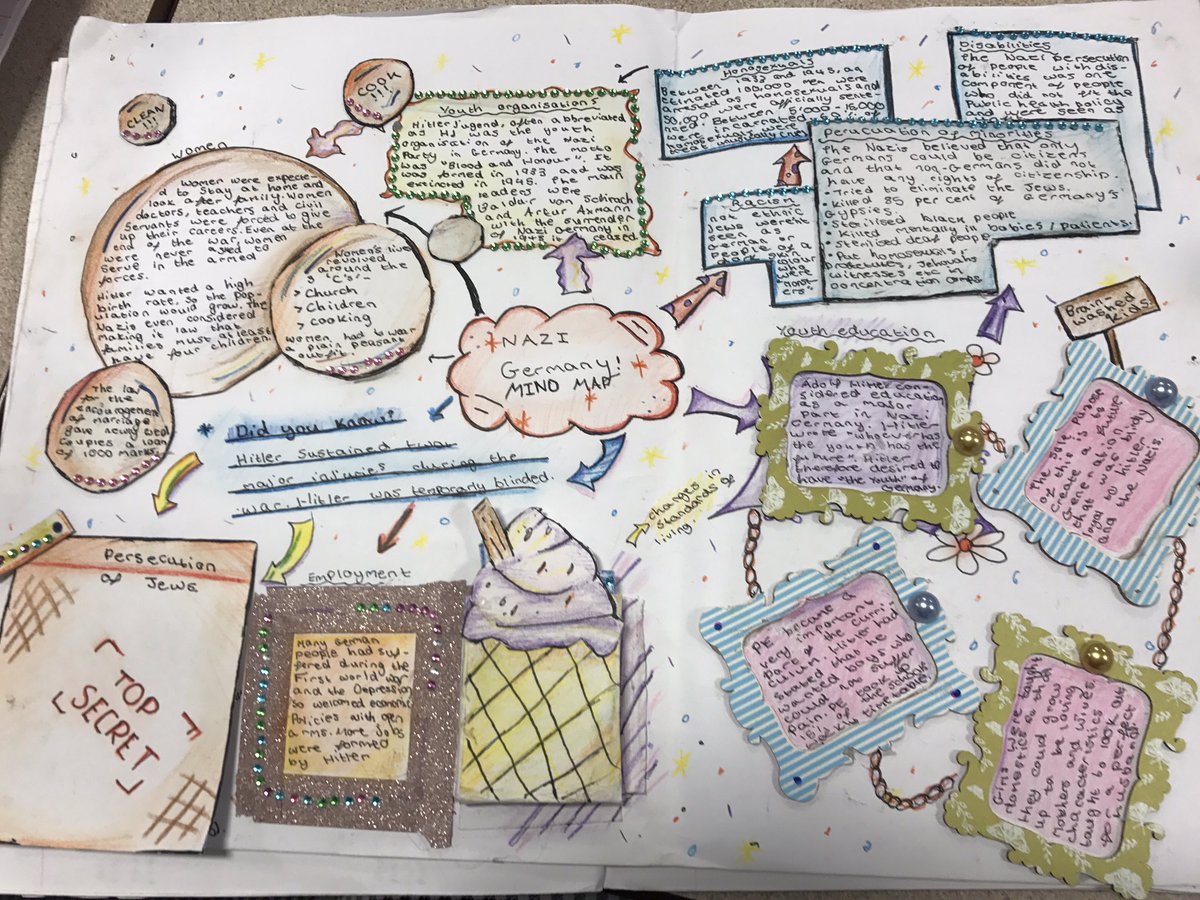 CLEAN
!!!
COOK
!!!
Women
Women were expecte-
d to stay at home and
look after family. Women
doctors, teachers and civil
servants were forced to give
up their careers. Even at the
end of the war, women
were never asked to
serve in the armed
forces.
Hitler wanted a high
birth rate, so the pop-
ulation would grow. The
Nazis even considered
making it law that
families must atleast
have four children
Women's lives
revolved
around the
3 "C's":-
> Church
> Children
> cooking
women had to wear
plain peasant
outfit
The law
for the
encouragement
of marriage
gave newly wed
couples a loan
of 1000 marks.
Youth organisations
Hitler Jugend, often abbreviated
as HJ was the youth
organisation of the Nazi
Party in Germany. The motto
was "Blood and Honour". It
was formed in 1933 and was
extinced in 1945. The main
leaders were
Baldar von Schirach
and Artur Axmann
with the surrender
of Nazi Germany in
1945 it
Homosexuals
Between 1933 and 1945, an
estimated 100,000 men were
arrested as homosexuals and
50,000 were officially sente-
nced. Between 5,000-15,000
Disabilities
The Nazi persecution
of people with dis-
abilities was one
component of people
who did not fit the
Public health policy
and were seen as
Racism
not ethnic
Jews weren't
seen as
German or
people of a
Persucation of minorities
The Nazis believed that only
Germans could be citizens
and that non-Germans did not
have any rights of citizenship
• Tried to eliminate the Jews.
• Killed 85 per cent of Germany's
Gypsies.
• Sterilised black people
• Killed mentally ill babies / Patients.
• Sterilised deaf people
• Put homosexuals,
Prostitutes, Jehovahs
witnesses etc in
concentration camps.
NAZI
Germany!
MIND MAP
* Did you Know?
Hitler Sustained two
major injuries during the
war. Hitler was temporarily blinded.
changes in
standards of
living.
Youth education
Adolf Hitler con-
sidered education
as a major
part in Nazi
Germany. Hitler
wrote "whoever has
the youth has the
future". Hitler
therefore desired to
have "the youth" of
Germany.
Brain-
washed
kids.
The sole purpose
of this is to
create a future
generation
that was blindy
loyal to Hitler
and the Nazis.
PE became a
very important
part of the curri-
culum. Hitler had
stated that he
wanted boys who
could suffer
pain. PE took over
15% of the school
timetable.
Girls were taught
domestics so that
they could grow
up to be loving
mothers and wives
characteristics
taught to look out
for a perfect
husband.
Persecution
of Jews
TOP
SECRET
Employment
Many German
people had suf-
fered during the
First world war
and the Depression
so welcomed economic
Policies with open
arms. More jobs
were formed
by Hitler